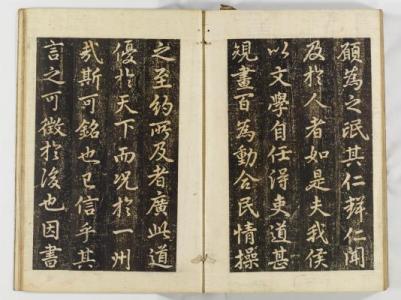 願為之氓其仁聲仁聞
及於人者如是夫我侯
以文學自任得吏道甚
規書一百為動合民情操
之至約所及者廣此道
優於天下而況於一州
哉斯可銘也已信乎其
言之可徵於後也因書